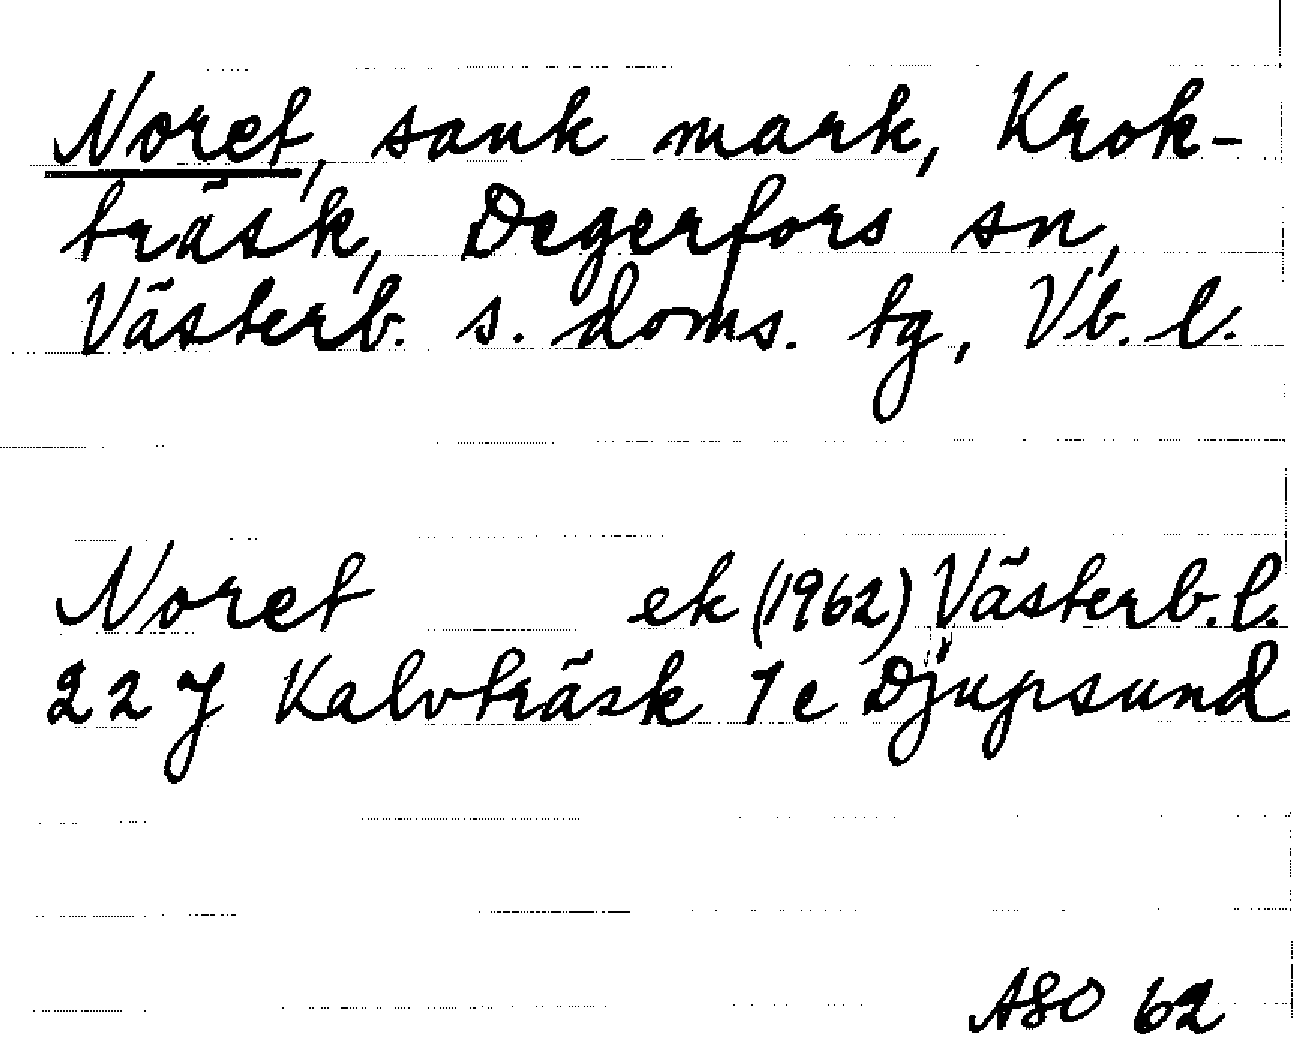 Noret, sank mark, Krok-
träsk, Degerfors sn,
Västerb. s. doms. tg, Vb. l.
Noret ek (1962) Västerb. l.
22 J Kalvträsk 7 c Djupsund
ASO 62